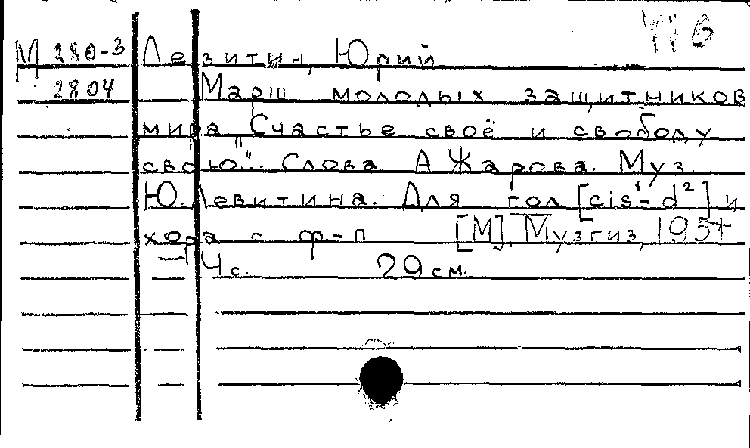 М 280-3 Левитин, Юрий
2804 Марш молодых защитников
мира "Счастье своё и свободу
свою". Слова А Жарова. Муз.
Ю. Левитина. Для гол [cis¹-d²] и
хора с ф-п [М], Музгиз,
4 с. 29 см.